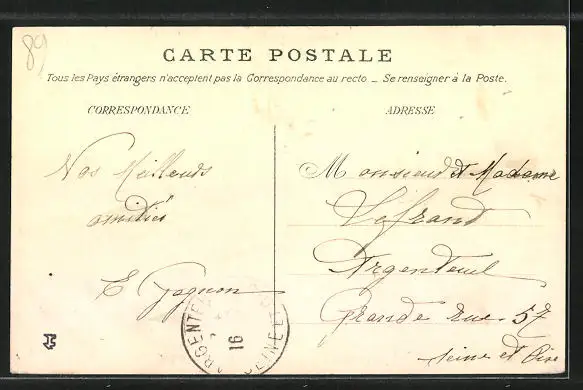 89
CARTE POSTALE
Tous les Pays étrangers n'acceptent pas la Correspondance au recto _ Se renseigner à la Poste.
CORRESPONDANCE
ADRESSE
Nos Meilleurs
amitiés
E Gagnon
Monsieur et Madame
Lefrand
Argenteuil
Grande rue 57
Seine et Oise
16